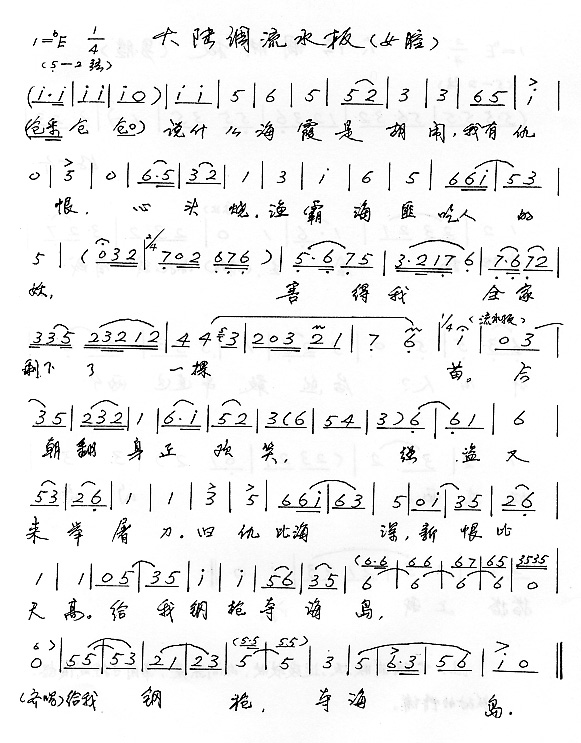 1=ᵇE 1/4 大陆调流水板(女腔)
(5—2弦)
(i·i|ii|i0)|ii|5|6|5|52|3|3|65|i|
仓 仓 仓0) 说什么海霞是胡闹,我有仇
0|5|0|6·5|32|1|3|i|6|5|66i|53|
恨, 心头烧,渔霸海匪吃人的
5|(032|2/4 702 676)|5·6 75|3·217 6|7·672|
妖, 害得我全家
335 23212|44 3|203 21|7 6|1/4 i|03|
(流水板)
剩下了一棵苗。今
35|232|1|6·i|52|3(6|54|3)6|61|6|
朝翻身正欢笑, 强盗又
53|26|1|1|3|5|66i|63|5|0i|35|26|
来举屠刀。旧仇比海深,新恨比
(6·6 66 67 65 3535
1|1|05|35|i|i|56|35|6|6|6|6|0
天高。给我钢枪夺海岛,
6) (55 55)
0|55|53|21|23|5|5|3|5|6·3|56|i0‖
(齐唱)给我钢枪, 夺海岛。